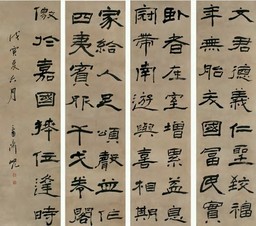 文君德義仁聖致福
年無胎夭國富民實
者在室增累益息
帶南遊與喜相期
家給人足頌聲並作
四夷賓服干戈閣
於嘉國拜位逢時
戊寅六月